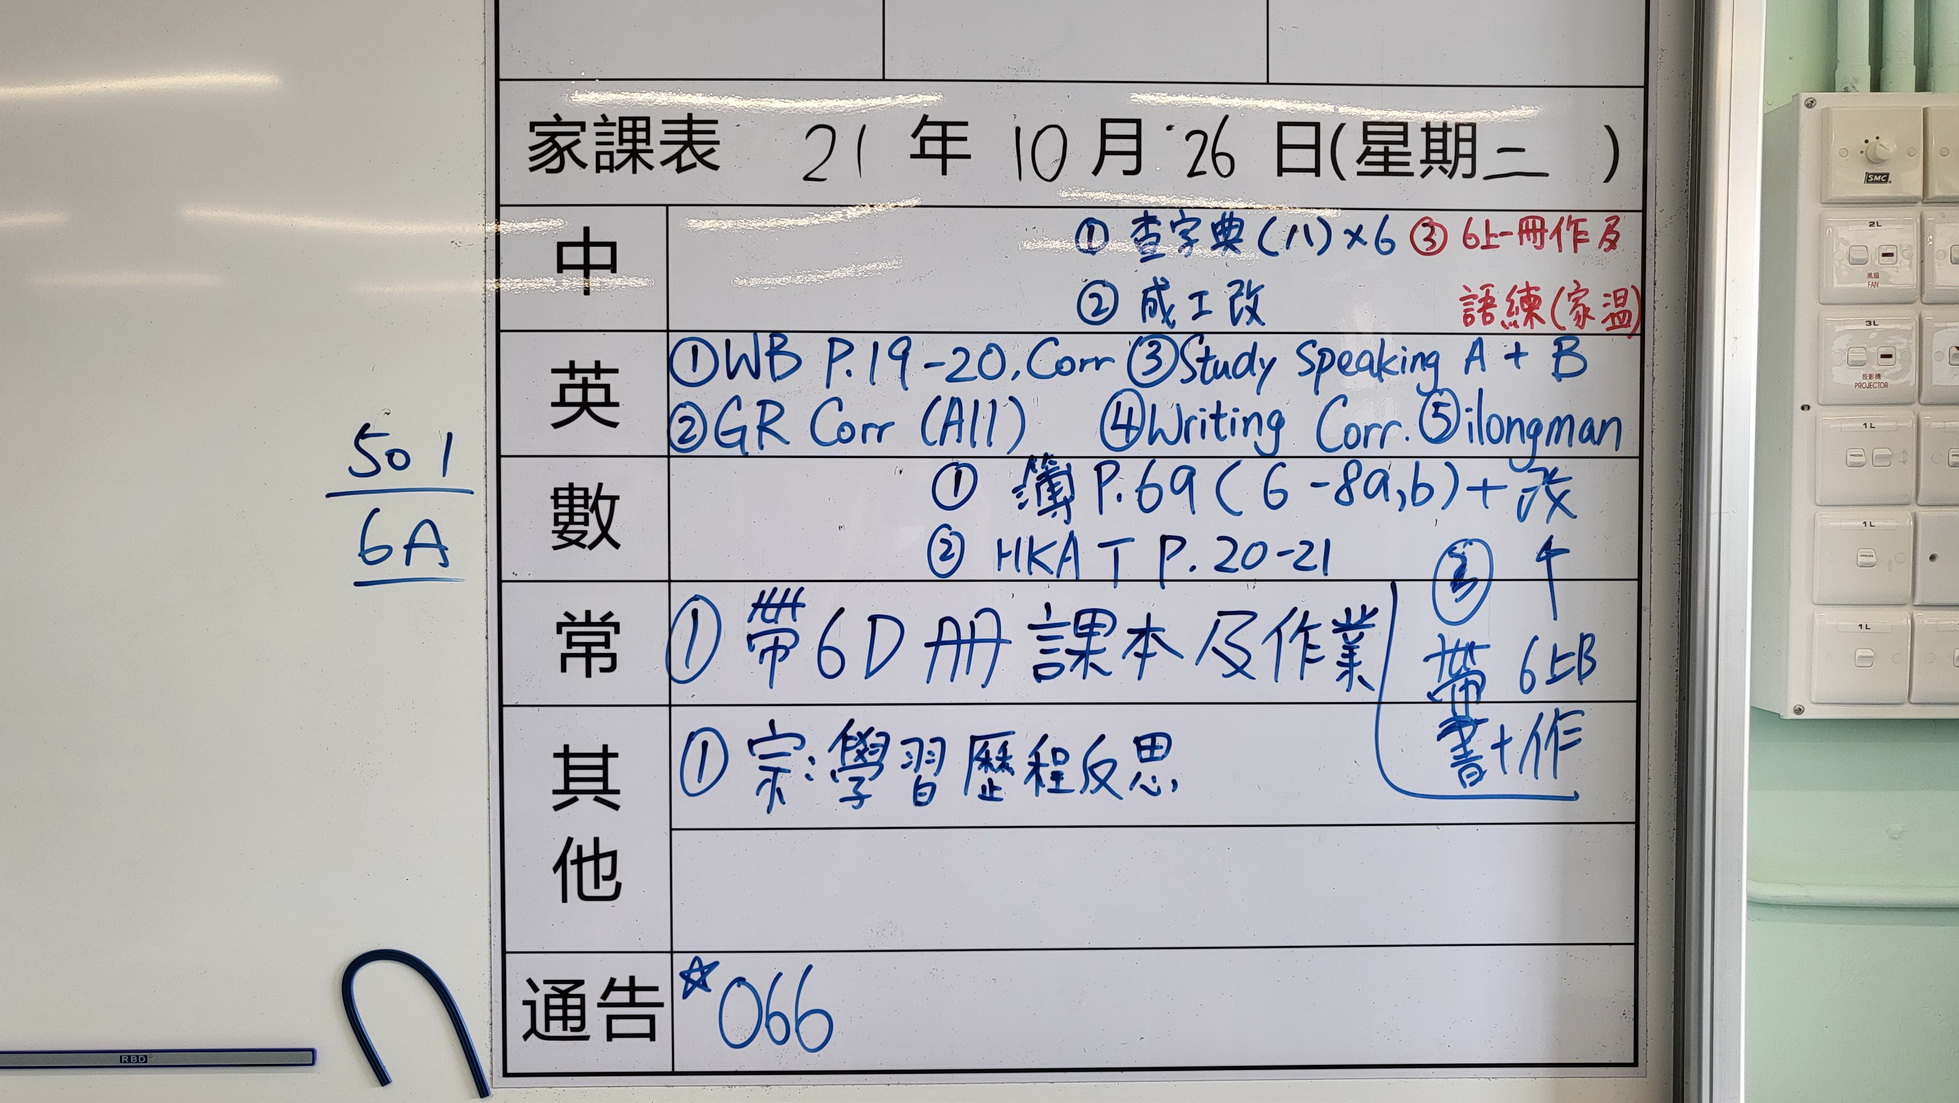 家課表 21 年 10 月 26 日(星期二 )
中
① 查字典(八)×6 ③ 6上一冊作及
② 成工改 語練(家溫)
英
①WB P.19-20, Corr ③Study Speaking A + B
②GR Corr (All) ④Writing Corr. ⑤ilongman
數
① 簿 P.69 ( 6 -8a,b)+ 改
② HKAT P. 20-21
③ 个
帶 6上B
書+作
常
① 帶 6D 冊 課本及作業
其他
① 宗:學習歷程反思
通告
☆066
501
6A
SMC
2L
風扇
FAN
3L
投影機
PROJECTOR
1L
1L
1L
RBD